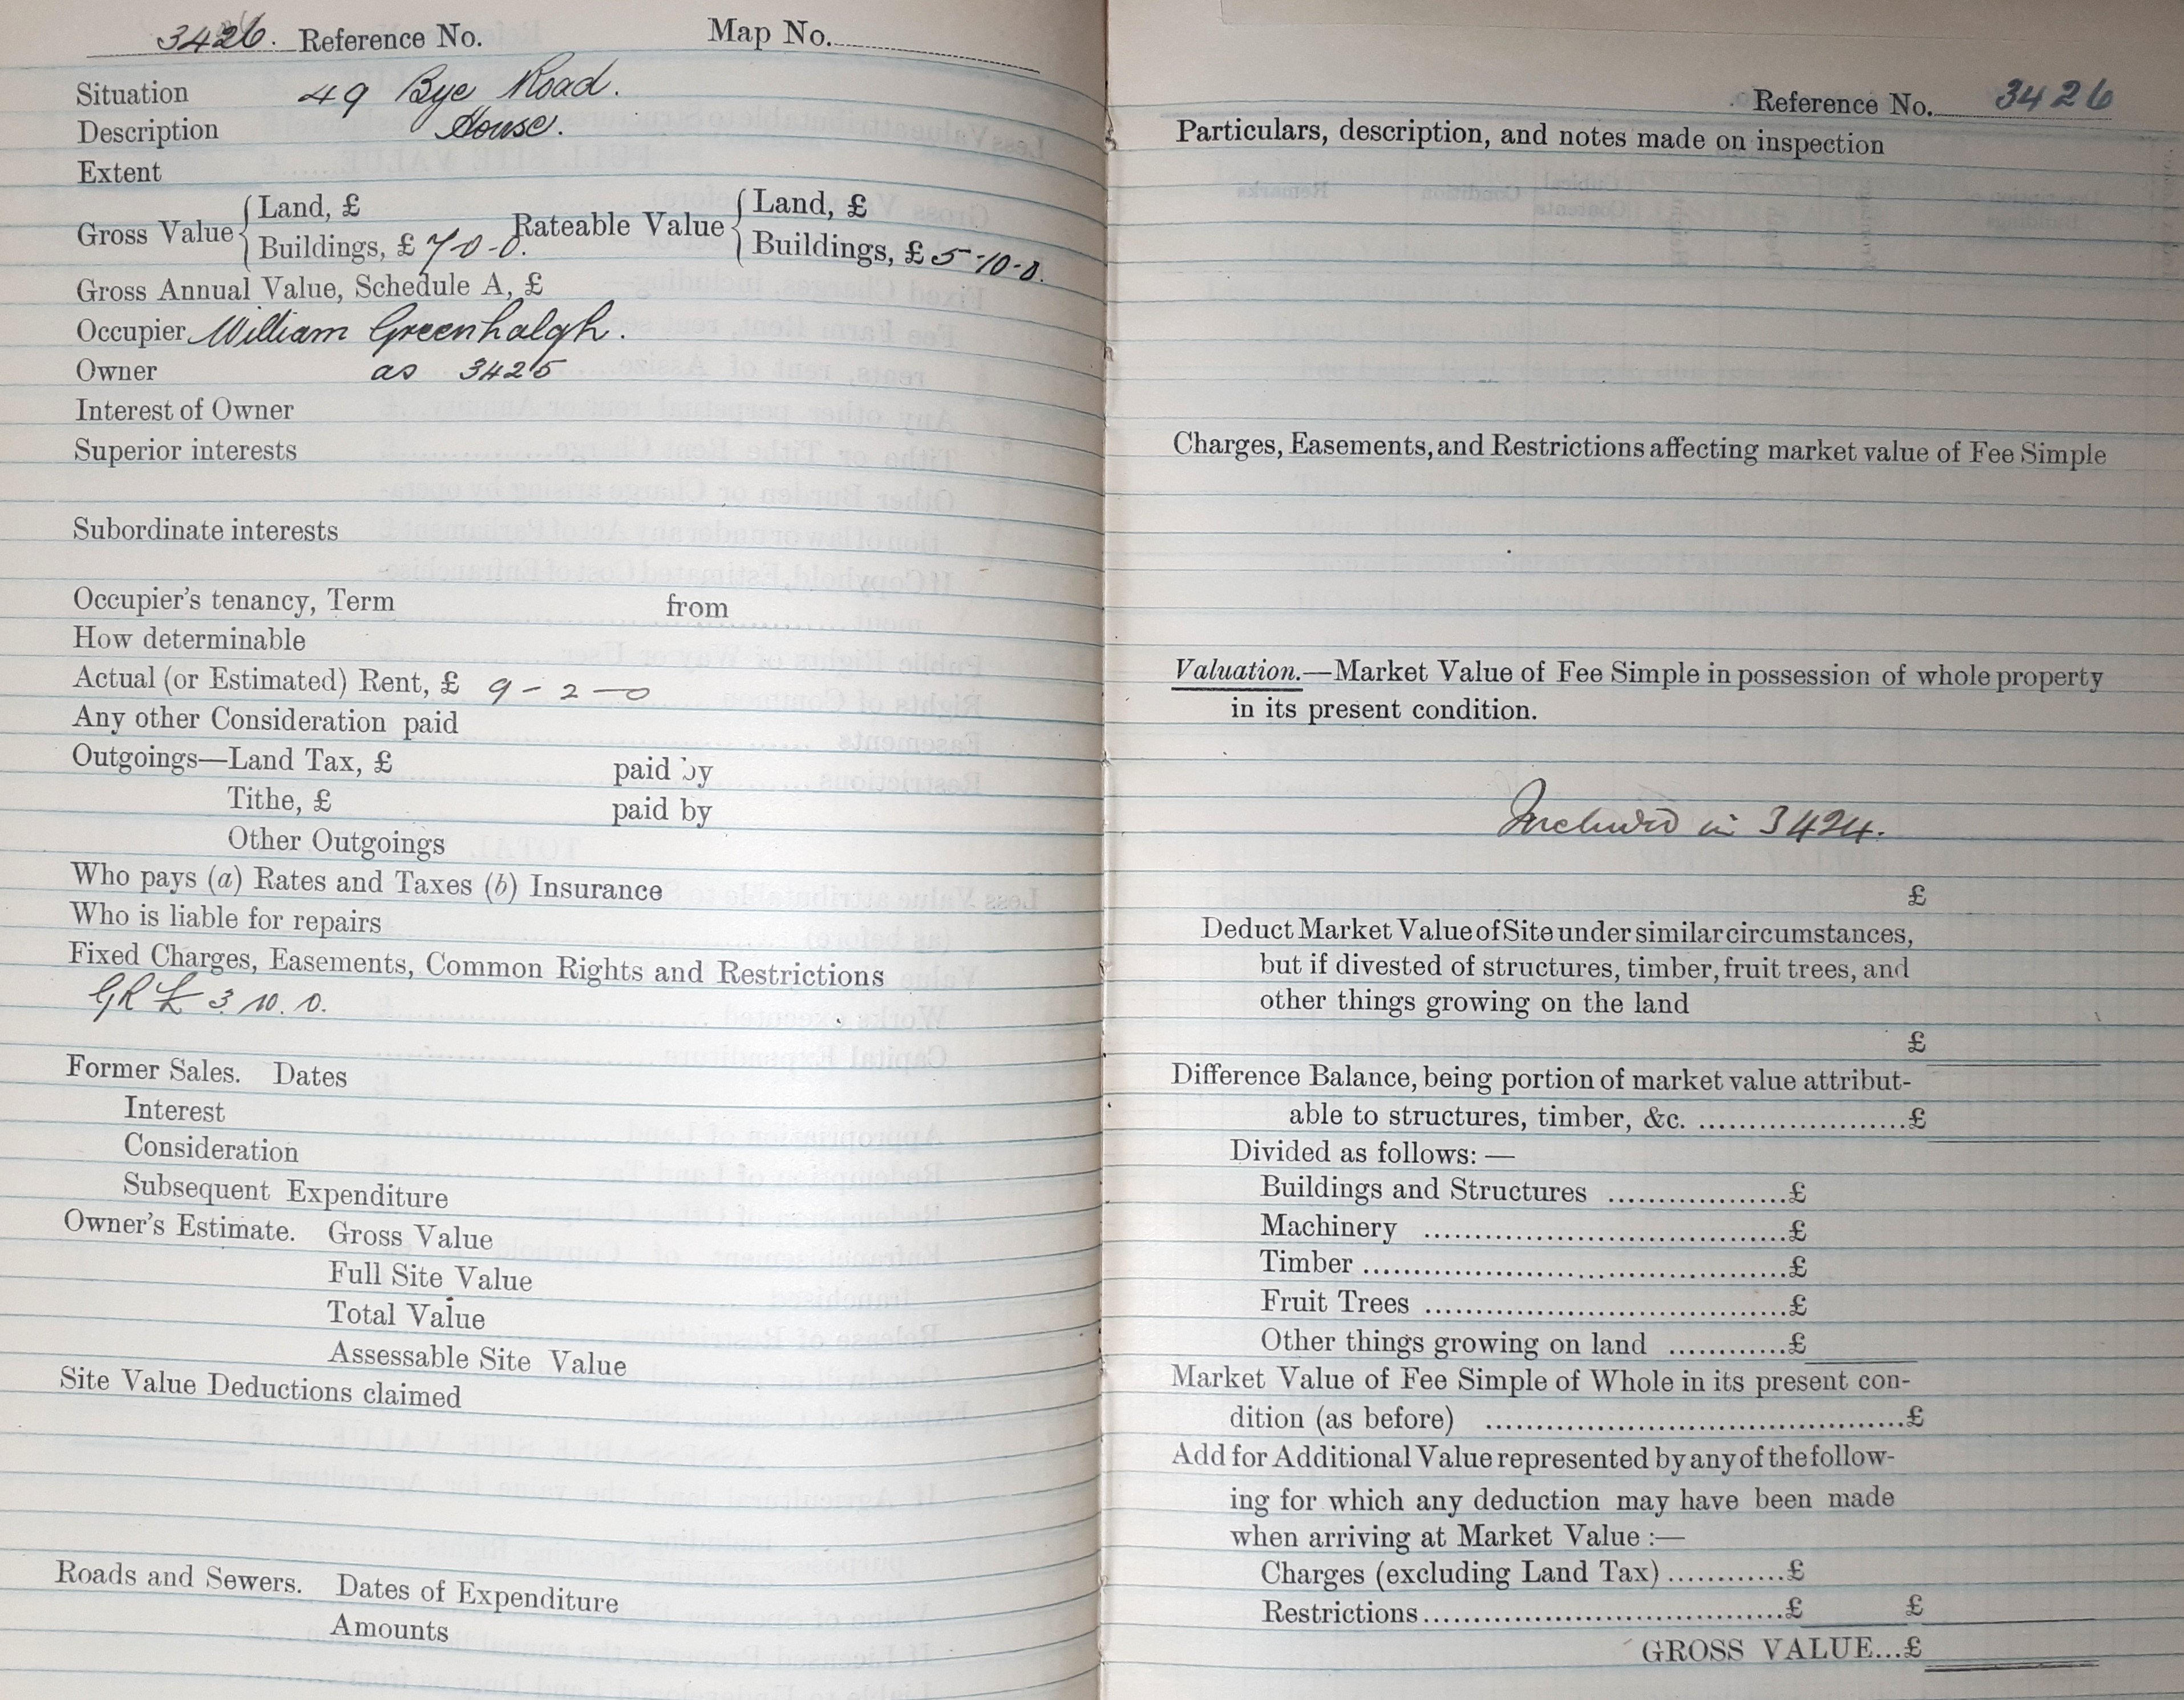 3426. Reference No. Map No.
Situation 49 Bye Road.
Description House.
Extent
Gross Value { Land, £ Rateable Value { Land, £
Buildings, £ 7-0-0. Buildings, £ 5-10-0.
Gross Annual Value, Schedule A, £
Occupier William Greenhalgh.
Owner as 3425
Interest of Owner
Superior interests
Subordinate interests
Occupier's tenancy, Term from
How determinable
Actual (or Estimated) Rent, £ 9-2-0
Any other Consideration paid
Outgoings—Land Tax, £ paid by
Tithe, £ paid by
Other Outgoings
Who pays (a) Rates and Taxes (b) Insurance
Who is liable for repairs
Fixed Charges, Easements, Common Rights and Restrictions
GR £ 3. 10. 0.
Former Sales. Dates
Interest
Consideration
Subsequent Expenditure
Owner's Estimate. Gross Value
Full Site Value
Total Value
Assessable Site Value
Site Value Deductions claimed
Roads and Sewers. Dates of Expenditure
Amounts
Reference No. 3426
Particulars, description, and notes made on inspection
Charges, Easements, and Restrictions affecting market value of Fee Simple
Valuation.—Market Value of Fee Simple in possession of whole property
in its present condition.
Included in 3424.
£
Deduct Market Value of Site under similar circumstances,
but if divested of structures, timber, fruit trees, and
other things growing on the land
£
Difference Balance, being portion of market value attribut-
able to structures, timber, &c. ....................£
Divided as follows: —
Buildings and Structures ..................£
Machinery ....................................£
Timber ..........................................£
Fruit Trees ....................................£
Other things growing on land ............£
Market Value of Fee Simple of Whole in its present con-
dition (as before) ..........................................£
Add for Additional Value represented by any of the follow-
ing for which any deduction may have been made
when arriving at Market Value :—
Charges (excluding Land Tax) ............£
Restrictions ....................................£ £
GROSS VALUE...£